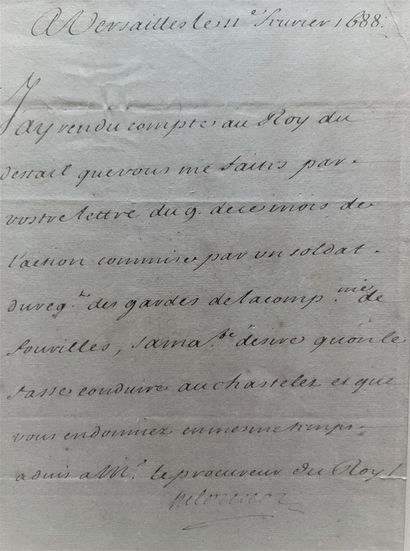 A Versailles le 11e feurier 1688.
J'ay rendu compte au Roy du
destail que vous me faites par
vostre lettre du 9. de ce mois de
l'action commise par un soldat
du reg.t des gardes de la comp.nie de
Souvilles, sa ma.té desire qu'on le
fasse conduire au chastelet et que
vous en donniez en mesme temps
aduis a Mr. le procureur du Roy